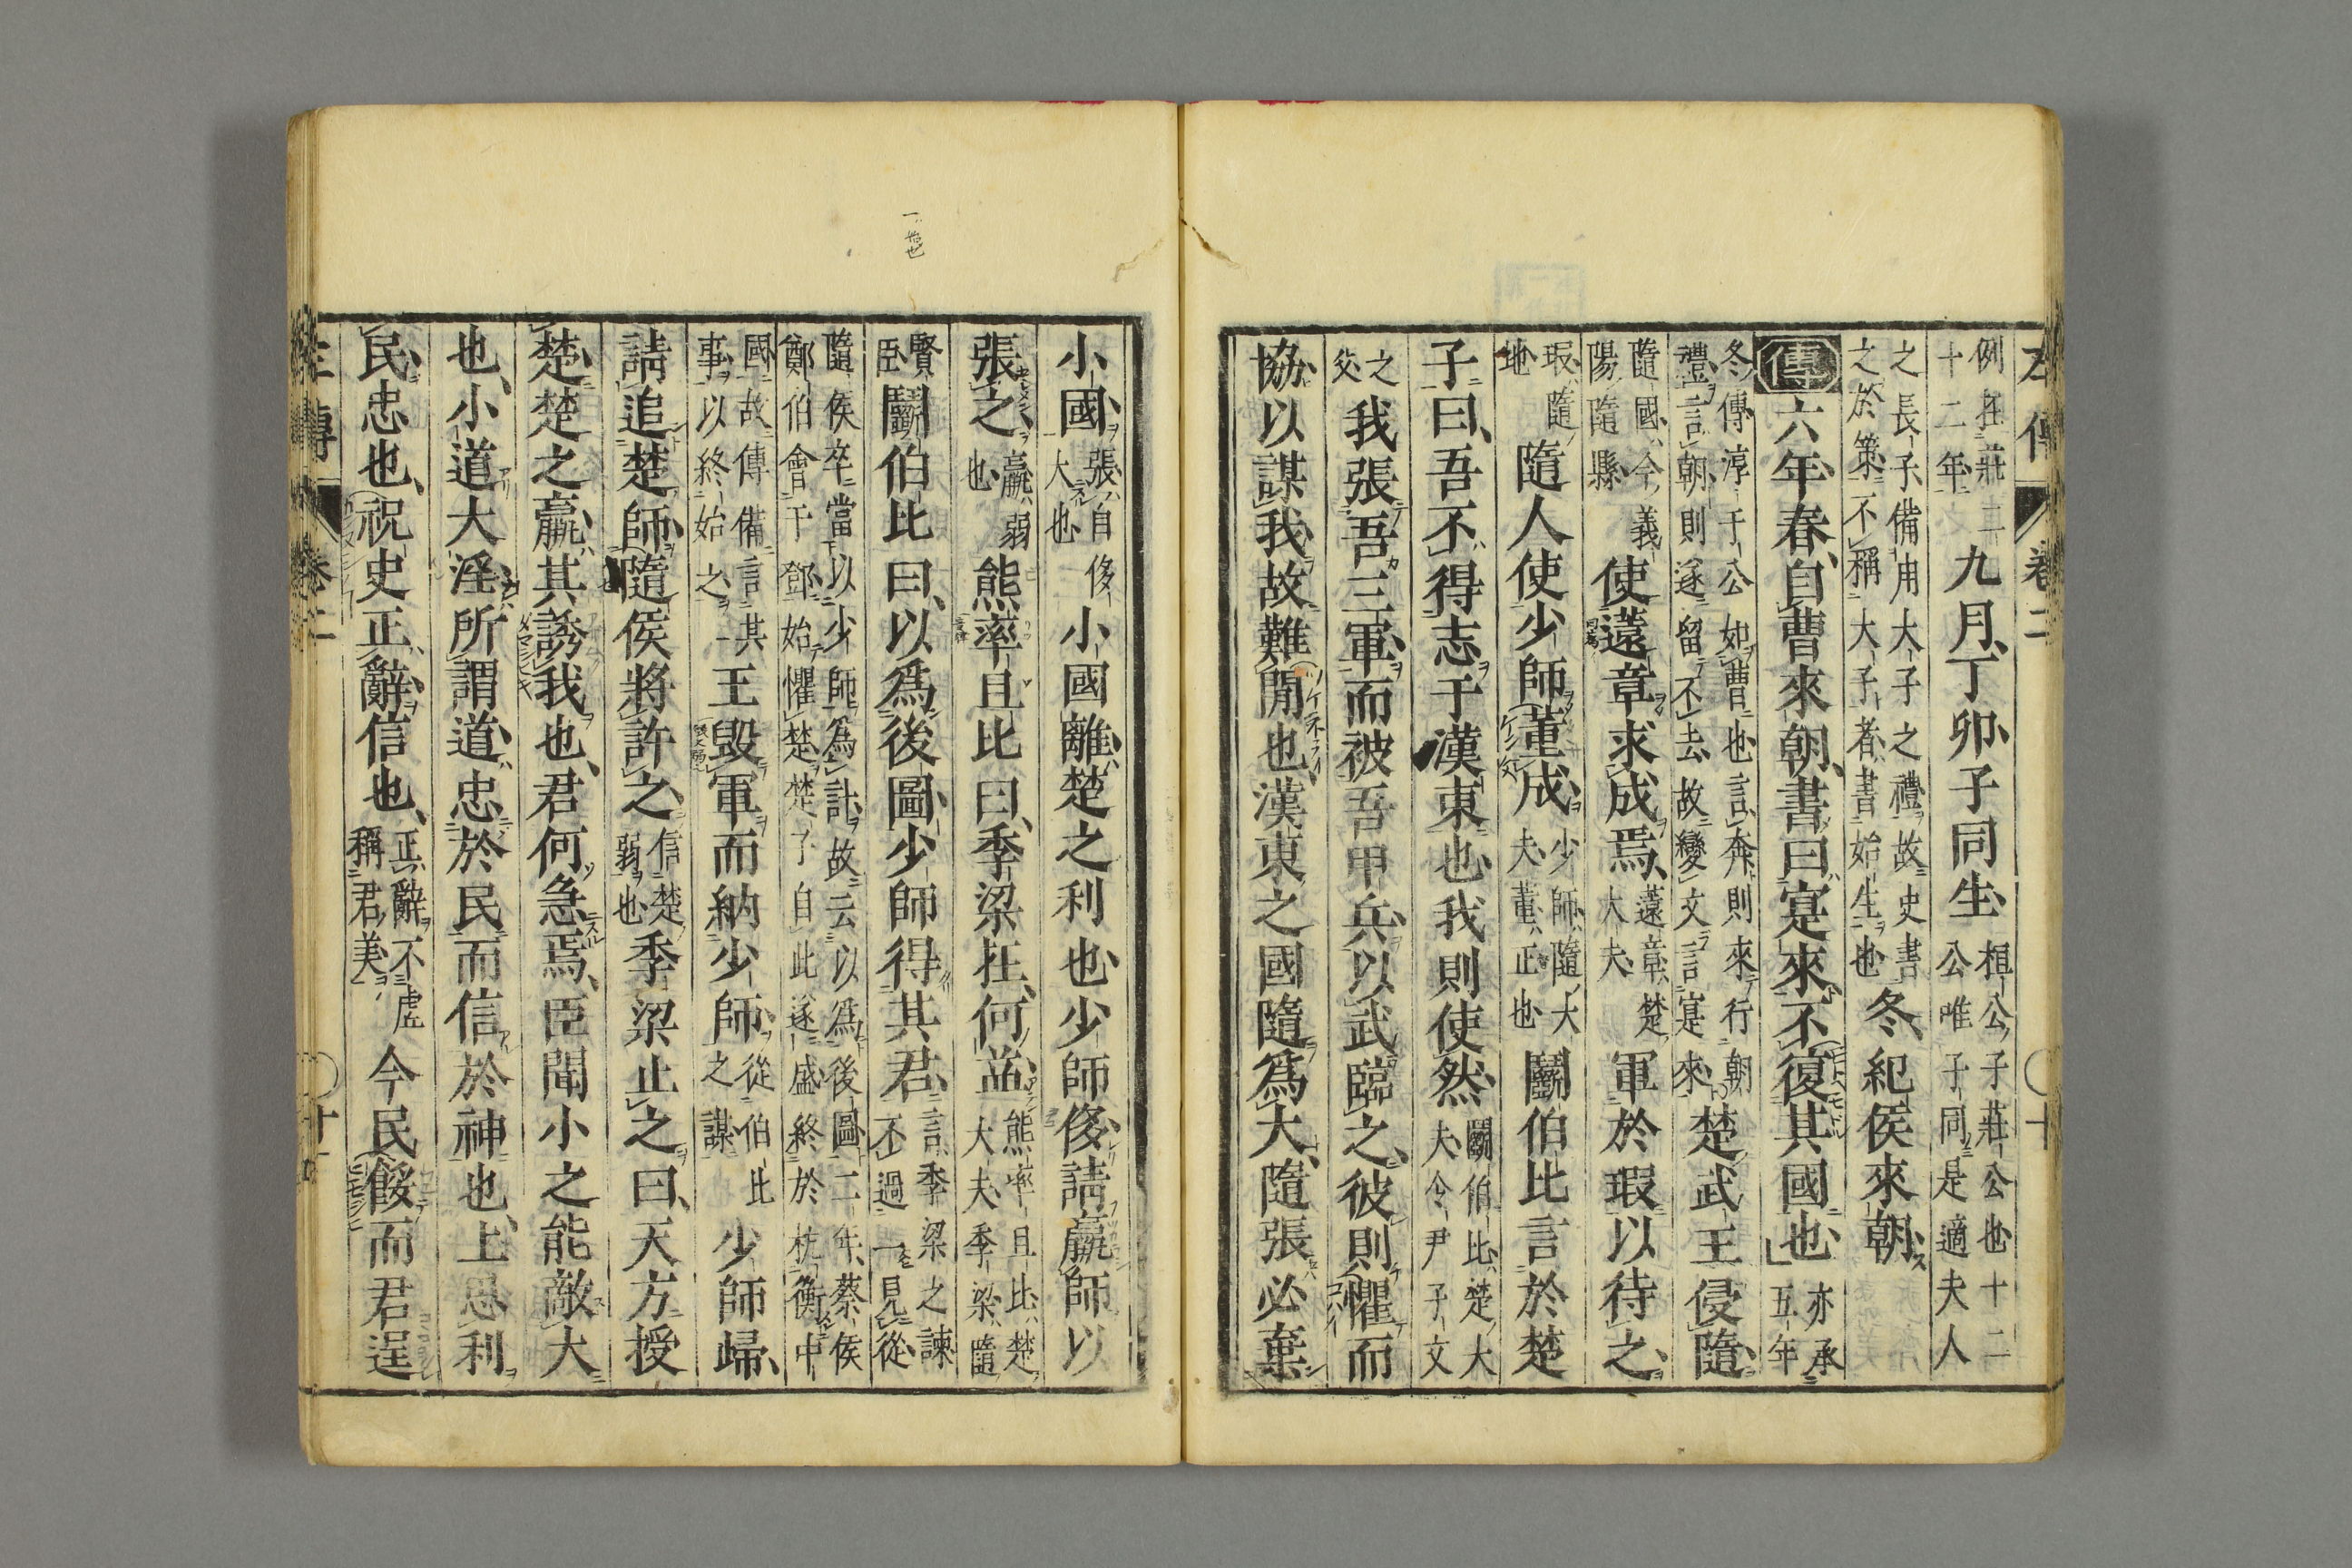 左傳 卷二 十
例在莊二十二年 九月、丁卯、子同生、桓公子莊公也十二公唯子同是適夫人
之長子備用大子之禮故史書之於策不稱大子者書始生也 冬、紀侯來朝、
傳 六年春、自曹來朝、書曰寔來、不復其國也、亦承五年
冬傳淳于公如曹也言奔則來行朝禮言朝則遂留不去故變文言寔來 楚武王侵隨、
隨國今義陽隨縣 使薳章求成焉、薳章楚大夫 軍於瑕以待之、
瑕隨地 隨人使少師董成、少師隨大夫董正也 鬭伯比言於楚
子曰、吾不得志于漢東也我則使然、鬭伯比楚大夫令尹子文
之父 我張吾三軍、而被吾甲兵、以武臨之、彼則懼而
協以謀我、故難閒也、漢東之國隨爲大、隨張必棄
小國、張自侈大也 小國離、楚之利也、少師侈、請羸師以
張之、羸弱也 熊率且比曰、季梁在、何益、熊率且比楚大夫季梁隨
賢臣 鬭伯比曰、以爲後圖、少師得其君、言季梁之諫不過一見從
隨侯卒當以少師爲計故云以爲後圖二年蔡侯鄭伯會于鄧始懼楚楚子自此遂盛終於抗衡中
國故傳備言其事以終始之 王毀軍而納少師、從伯比之謀 少師歸、
請追楚師、隨侯將許之、信楚弱也 季梁止之曰、天方授
楚、楚之羸、其誘我也、君何急焉、臣聞小之能敵大
也、小道大淫、所謂道、忠於民、而信於神也、上思利
民、忠也、祝史正辭、信也、正辭不虛稱君美 今民餒而君逞
左傳 卷二 十一